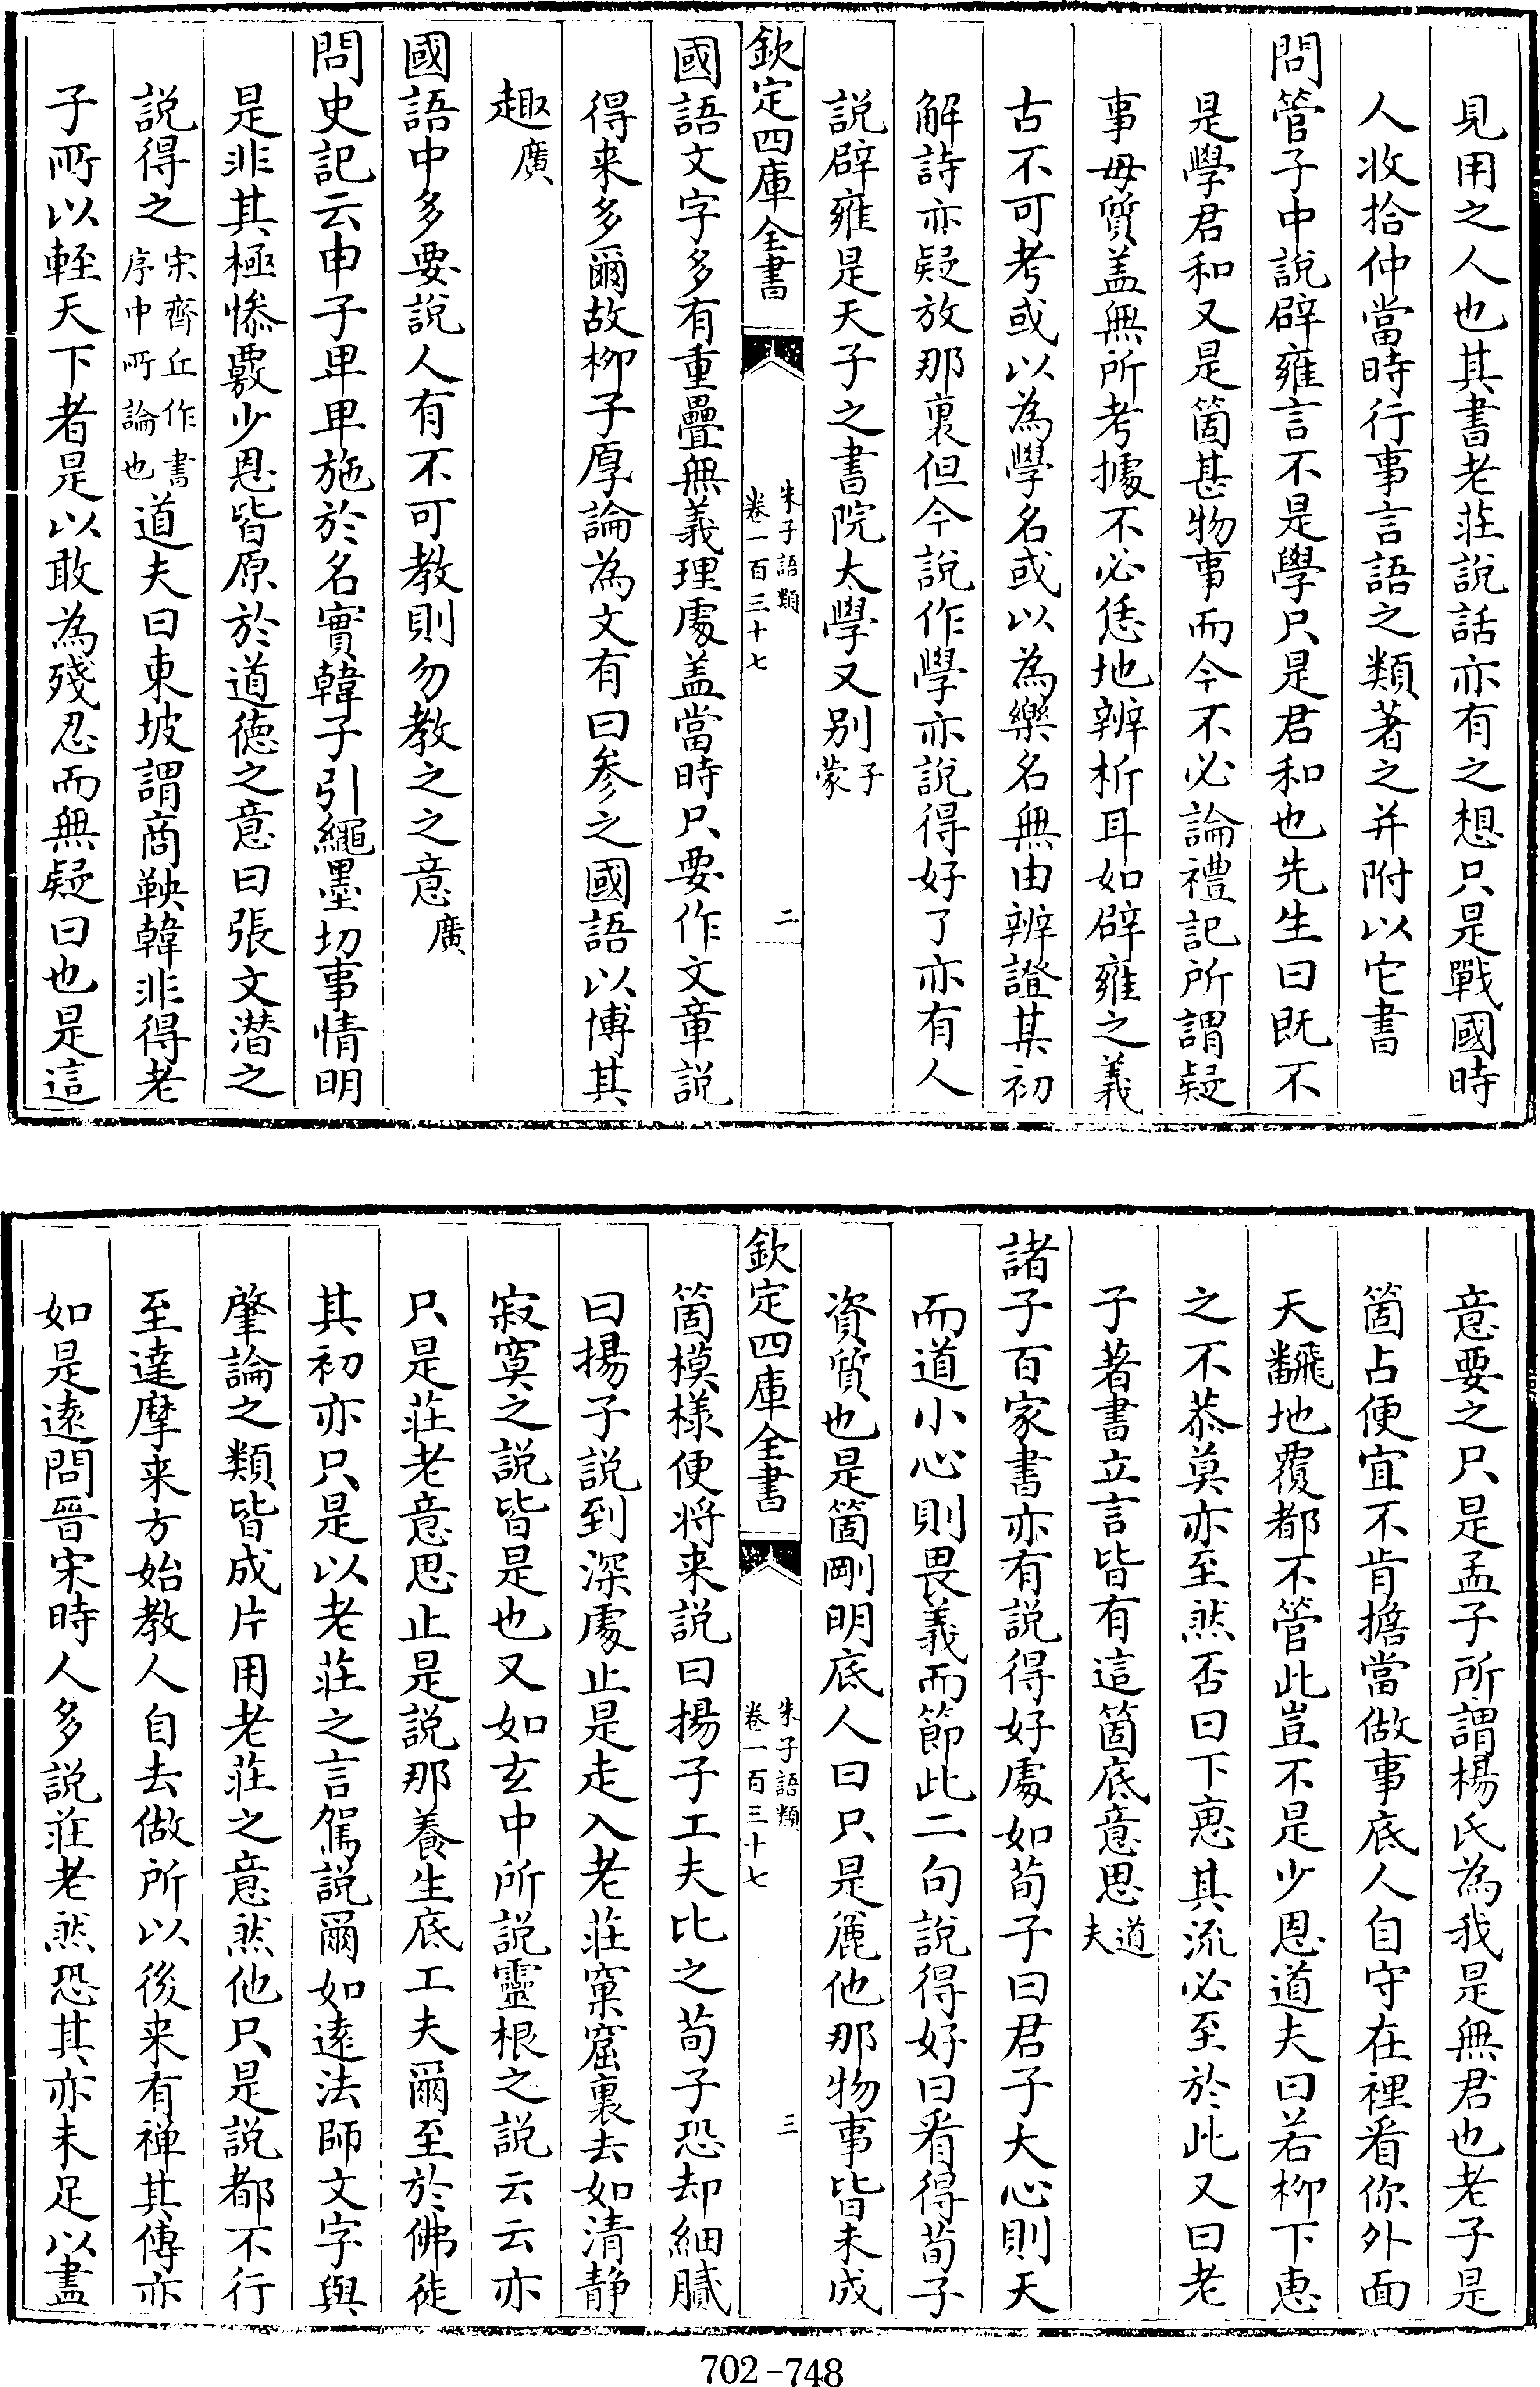 見用之人也其書老莊説話亦有之想只是戰國時
人收拾仲當時行事言語之類著之并附以它書
問管子中說辟雍言不是學只是君和也先生曰既不
是學君和又是箇甚物事而今不必論禮記所謂疑
事毋質盖無所考據不必恁地辨析耳如辟雍之義
古不可考或以為學名或以為樂名無由辨證某初
解詩亦疑放那裏但今說作學亦說得好了亦有人
説辟雍是天子之書院太學又别子蒙
欽定四庫全書
朱子語類
卷一百三十七
二
國語文字多有重疊無義理處盖當時只要作文章説
得来多爾故柳子厚論為文有曰参之國語以博其
趣廣
國語中多要説人有不可教則勿教之之意廣
問史記云申子卑卑施於名實韓子引繩墨切事情明
是非其極慘覈少恩皆原於道德之意曰張文潛之
說得之宋齊丘作書序中所論也道夫曰東坡謂商鞅韓非得老
子所以輕天下者是以敢為殘忍而無疑曰也是這
意要之只是孟子所謂楊氏為我是無君也老子是
箇占便宜不肯擔當做事底人自守在裡看你外面
天飜地覆都不管此豈不是少恩道夫曰若柳下惠
之不恭莫亦至然否曰下恵其流必至於此又曰老
子著書立言皆有這箇底意思道夫
諸子百家書亦有説得好處如荀子曰君子大心則天
而道小心則畏義而節此二句說得好曰看得荀子
資質也是箇剛明底人曰只是麄他那物事皆未成
欽定四庫全書
朱子語類
卷一百三十七
三
箇模樣便将来説曰揚子工夫比之荀子恐却細膩
曰揚子説到深處止是走入老莊窠窟裏去如清静
寂寞之説皆是也又如玄中所説靈根之説云云亦
只是莊老意思止是説那養生底工夫爾至於佛徒
其初亦只是以老莊之言駕說爾如逺法師文字與
肇論之類皆成片用老莊之意然他只是説都不行
至達摩来方始教人自去做所以後来有禅其傳亦
如是逺問晉宋時人多説莊老然恐其亦未足以盡
702-748